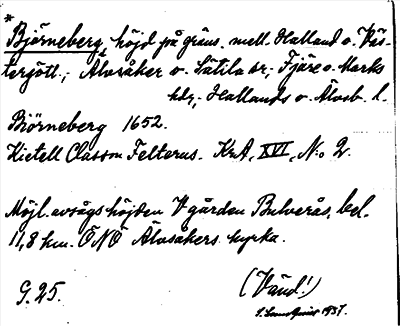 *
Björneberg, höjd på gräns. mell. Halland o. Väs-
tergötl.; Älvsåker o. Sätila sr; Fjäre o. Marks
hdr; Hallands o. Älvsb. l.
Biörneberg 1652.
Kietell Classon Felterus. KrA, XVI, No 2.
Möjl. avsågs höjden V gården Bulverås, bel.
11,8 km. ÖNÖ Älvsåkers kyrka.
G. 25.
(Vänd!)
1937.